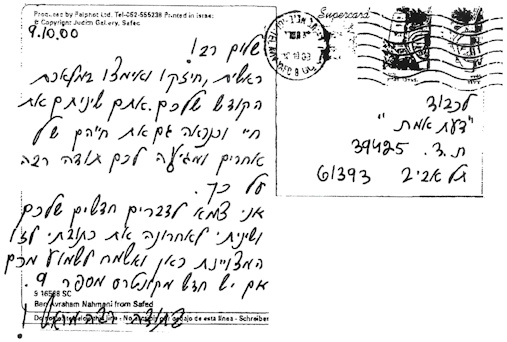 Produced by Palphot Ltd. Tel-052-555238 Printed in Israel
© Copyright Judim Gallery, Safed
9.10.00
שלום רב!
ראשית, חיזקו ואימצו במלאכת
הקודש שלכם. אתם שיניתם את
חיי וכנראה גם את חייהם של
אחרים ומגיעה לכם תודה רבה
על כך.
אני צמא לדברים חדשים שלכם
ושיניתי לאחרונה את כתובתי לזו
המצויינת כאן ואשמח לשמוע מכם
אם יש חדש מקונטרס מספר 9.
9 16568 SC
Ben Avraham Nahmani from Safed
בתודה רבה מראש
Do not write below this line - No escribir por debajo de esta línea - Schreiben
Supercard
לכבוד
"דעת אמת"
ת.ד. 39425
תל אביב 61393